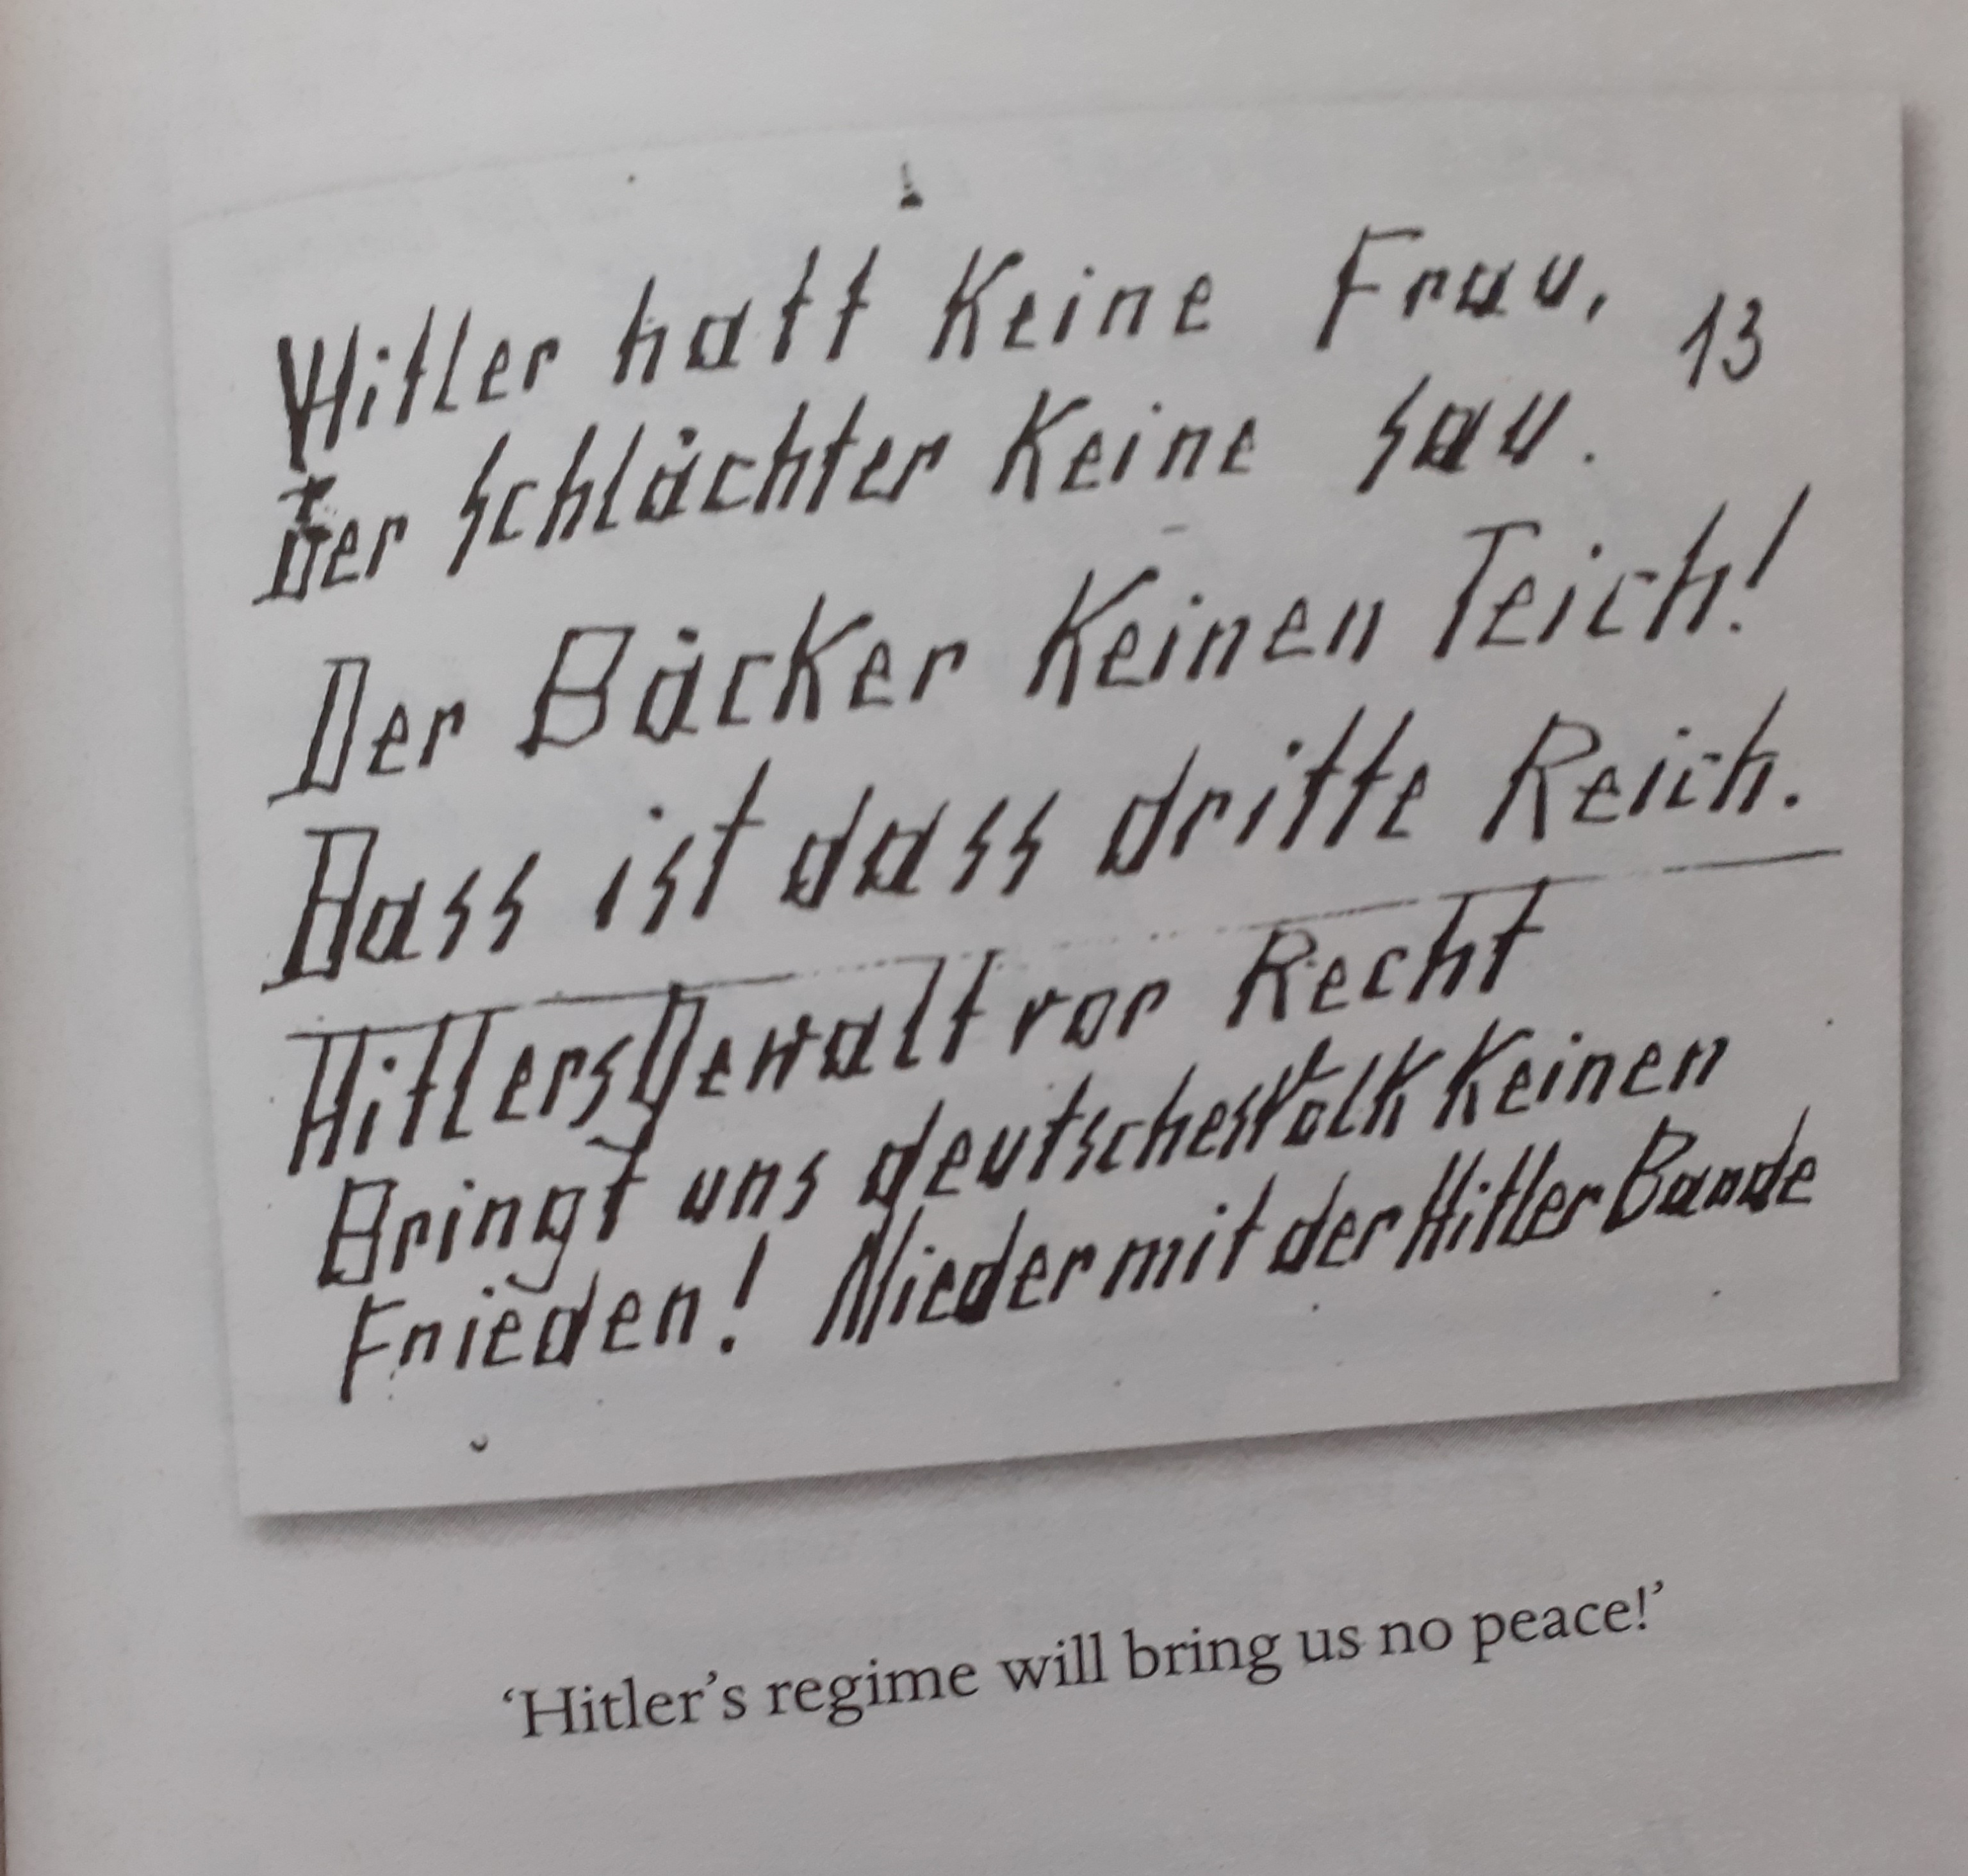 Hitler hatt Keine Frau,
13
Der Schlächter Keine Sau.
Der Bäcker Keinen Teich!
Dass ist dass dritte Reich.
Hitlers Gewalt vor Recht
Bringt uns deutsches Volk Keinen
Frieden! Nieder mit der Hitler Bande
‘Hitler’s regime will bring us no peace!’